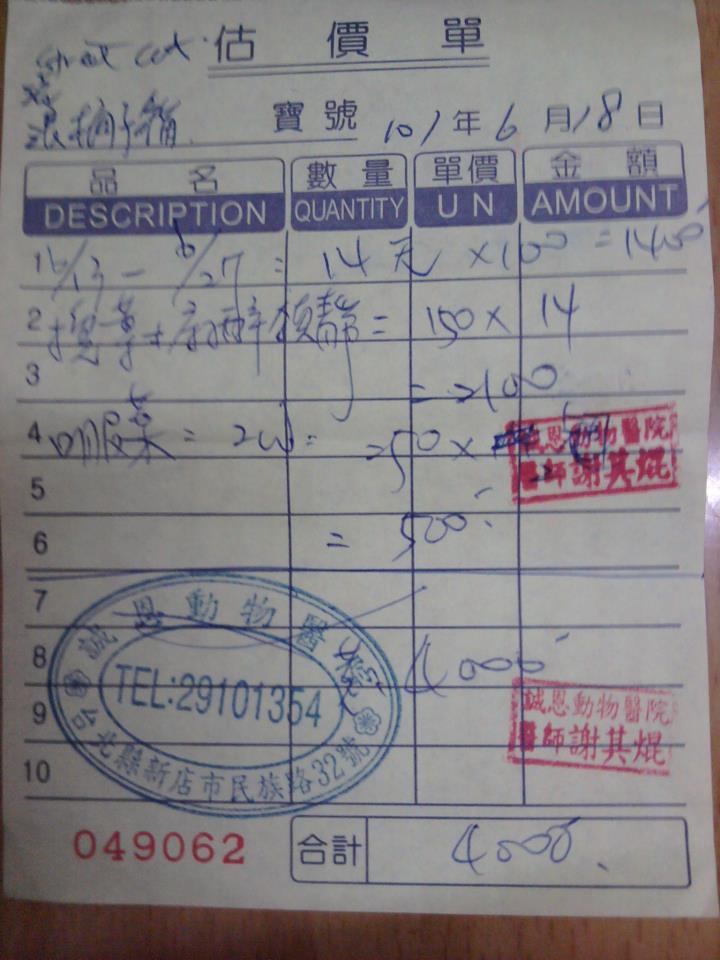 street cat 估價單
浪 貓
寶號 101年6月18日
品名 數量 單價 金額
DESCRIPTION QUANTITY U N AMOUNT
1 6/13 - 6/27 : 14天 ×100 = 1400
2 換藥+ = 150 × 14
3 = 2100
4 口服藥 = 2w = 250 ×
誠恩動物醫院
醫師謝其焜
5
6 = 500
7
8 4000
9
10
誠恩動物醫院
TEL:29101354
台北縣新店市民族路32號
誠恩動物醫院
醫師謝其焜
049062 合計 4000